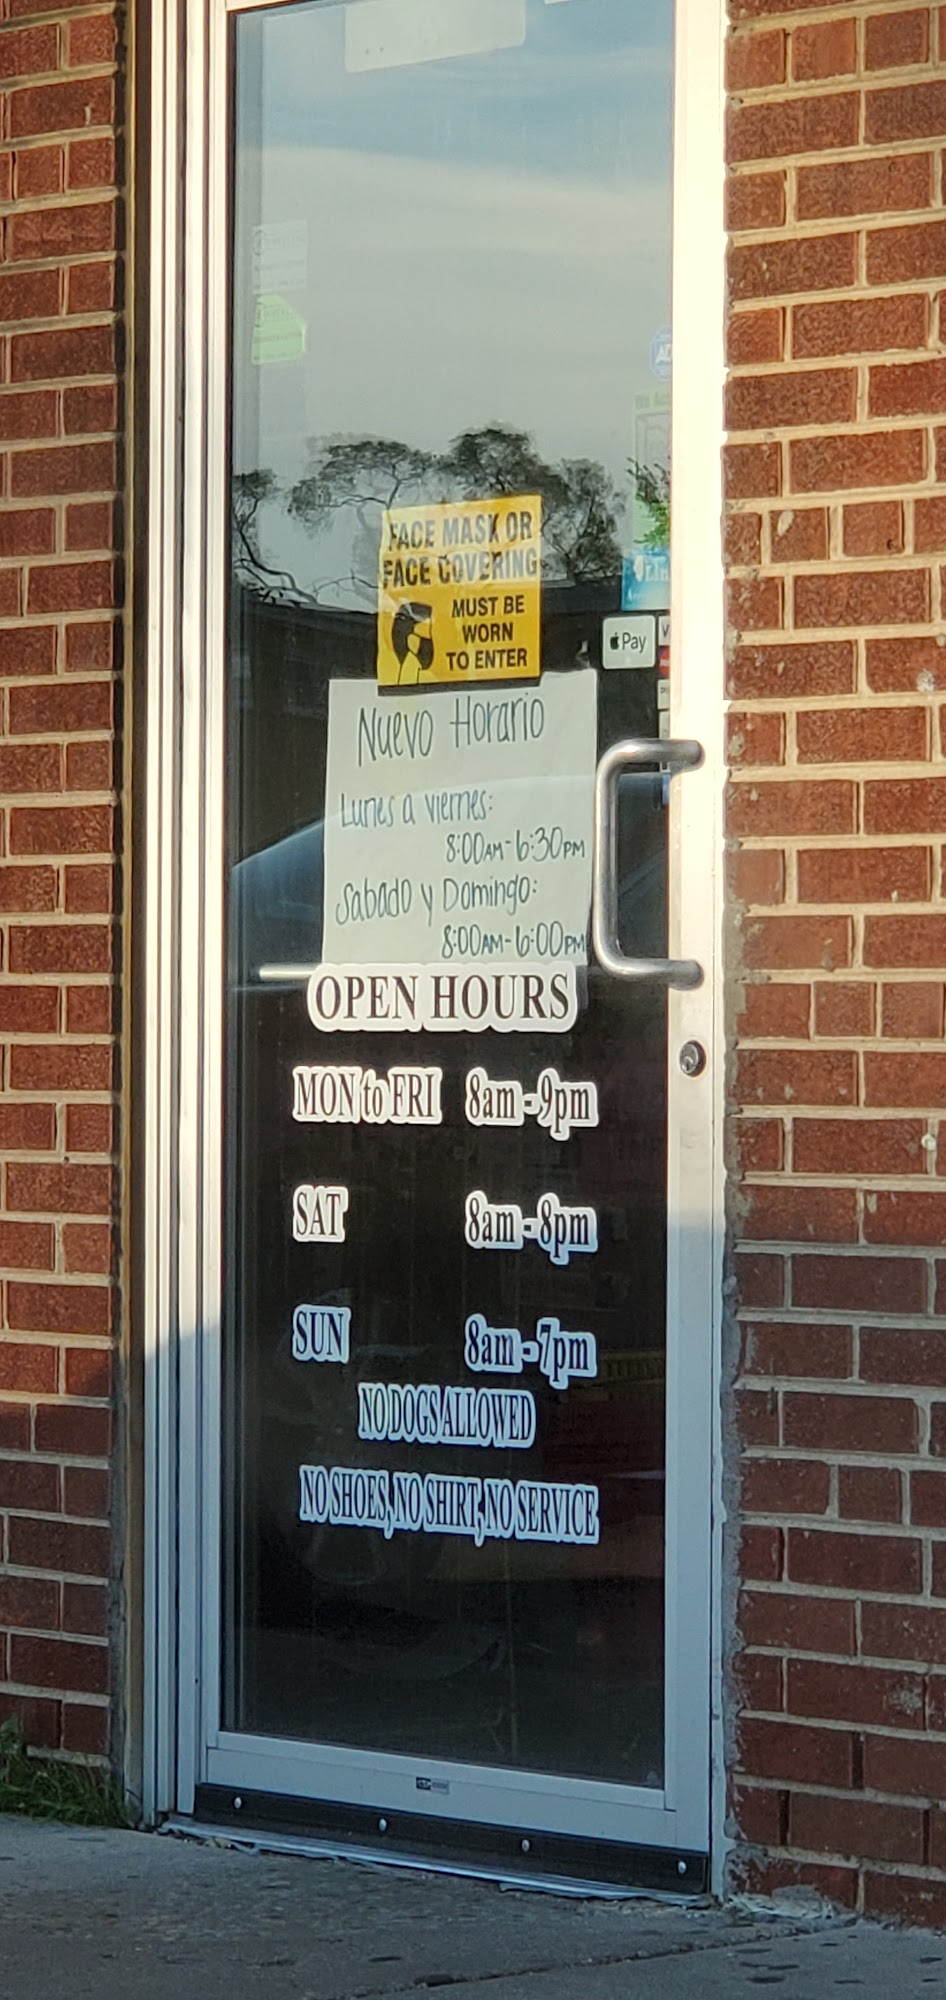 FACE MASK OR
FACE COVERING
MUST BE
WORN
TO ENTER
Pay
Nuevo Horario
Lunes a viernes:
8:00AM-6:30PM
Sabado y Domingo:
8:00AM-6:00PM
OPEN HOURS
MON to FRI 8am - 9pm
SAT 8am - 8pm
SUN 8am - 7pm
NO DOGS ALLOWED
NO SHOES, NO SHIRT, NO SERVICE